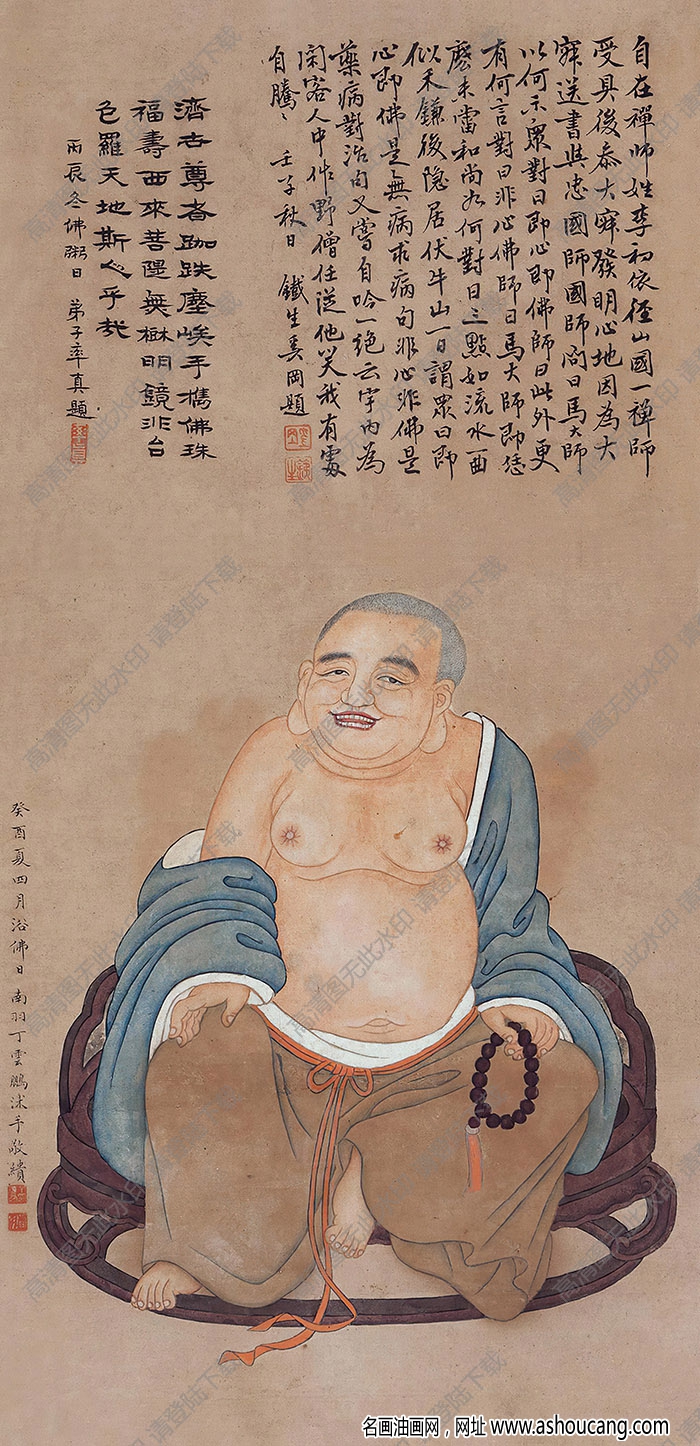 自在禪師姓李初依徑山國一禪師
受具後叅大寂發明心地因為大
寂送書與忠國師國師問曰馬大師
以何示衆對曰即心即佛師曰此外更
有何言對曰非心佛師曰馬大師即恁
麽未當和尚如何對曰三點如流水曲
似禾鐮後隱居伏牛山一日謂衆曰即
心即佛是無病求病句非心非佛是
藥病對治句又嘗自吟一絶云宇内為
閑客人中作野僧任從他笑我有處
自騰〻 壬子秋日 鐵生奚岡題
濟世尊者跏趺塵埃手携佛珠
福壽西來菩提無樹明鏡非台
包羅天地斯人乎哉
丙辰冬佛粥日 弟子率真題
癸酉夏四月浴佛日南羽丁雲鵬沐手敬繢
高清图无此水印 请登陆下载
名画油画网，网址 www.ashoucang.com